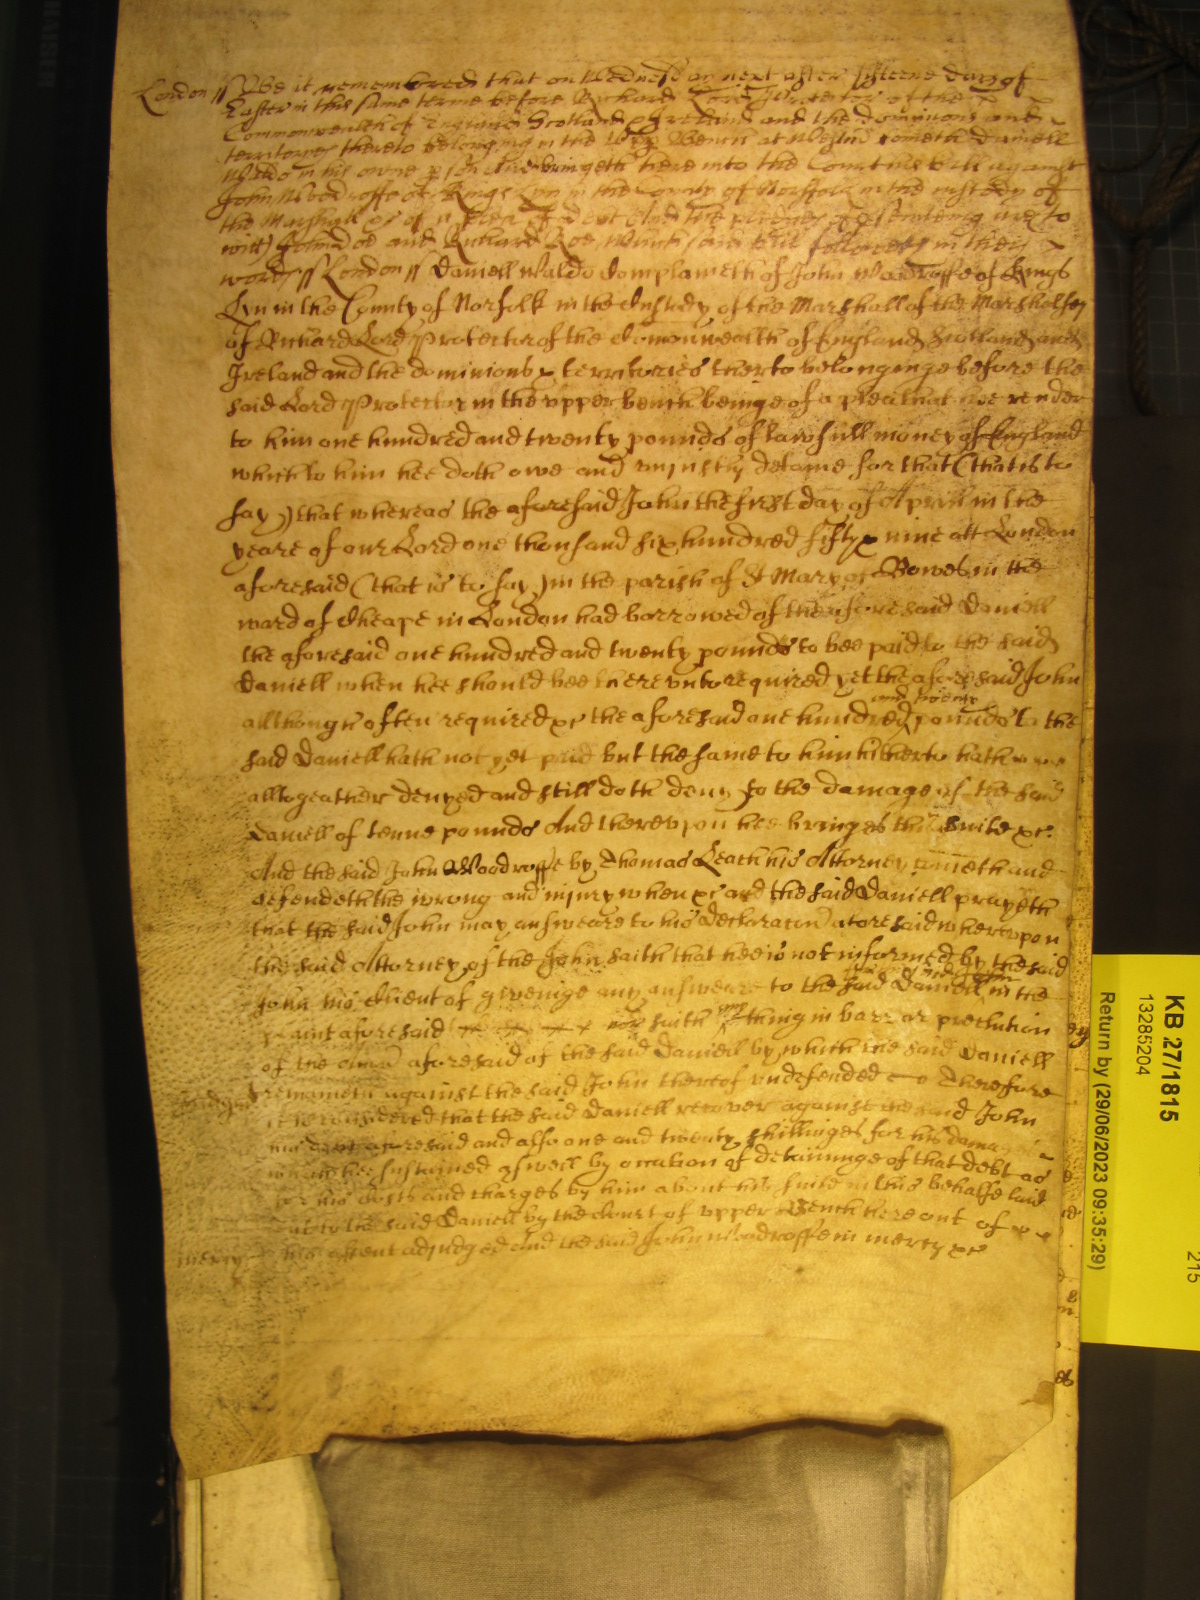 London ss Bee it remembred that on Wednesday next after fifteene dayes of
Easter in this same terme before Richard Lord Protector of the
Commonwealth of England Scotland & Ireland and the dominions and
territoryes thereto belonging in the Upp Bench at Westm cometh Daniell
Waldo in his owne p son And bringeth here into the Court his Bill against
John Woodroffe of Kings Lyn in the County of Norffolk in the custody of
the Marshall &c of a plea of debt And the pledges of p senteing are to
witt John Doe and Richard Roe Which said bill followeth in theis
words ss London ss Daniell Waldo Complaineth of John Woodroffe of Kings
Lyn in the County of Norfolk in the Custody of the Marshall of the Marshalsey
of Richard Lord Protector of the Comonwealth of England Scotland and
Ireland and the dominions & territories therto belonginge before the
said Lord Protector in the upper bench beinge of a plea that hee render
to him one hundred and twenty pounds of lawfull money of England
which to him hee doth owe and unjustly detaine for that (that is to
say) that whereas the aforesaid John the first day of Aprill in the
yeare of our Lord one thousand six hundred fifty & nine att London
aforesaid (that is to say) in the parish of St Mary of Bowes in the
ward of Cheape in London had borrowed of the aforesaid Daniell
the aforesaid one hundred and twenty pounds to bee paid to the said
Daniell when hee should bee thereunto required yet the aforesaid John
and twenty
although often required &c the aforesaid one hundred pounds to the
said Daniell hath not yet paid but the same to him hitherto hath
alltogeather denyed and still doth deny to the damage of the said
Daniell of tenne pounds And thereupon hee bringes this suite &c.
And the said John Woodroffe by Thomas Leach his Attorney cometh and
defendeth the wrong and injury when &c and the said Daniell prayeth
that the said John may answeare to his declaracon aforesaid whereupon
the said Attorney of the John saith that hee is not informed by the said
John his Client of giveinge any answeare to the said Daniell in the
plaint aforesaid nor saith any thing in barr or preclution
of the accion aforesaid of the said Daniell by which the said Daniell
remaineth against the said John therof undefended Therefore
it is considered that the said Daniell recover against the said John
his debt aforesaid and also one and twenty shillinges for his damages
which hee sustained aswell by occation of detaininge of that debt as
for his costs and charges by him about his suite in this behalfe laid
out to the said Daniell by the Court of upper Bench here out of
mercy his assent adjudged And the said John Woodroffe in mercy &c
KB 27/1815
13285204
Return by (29/06/2023 09:35:29)
215